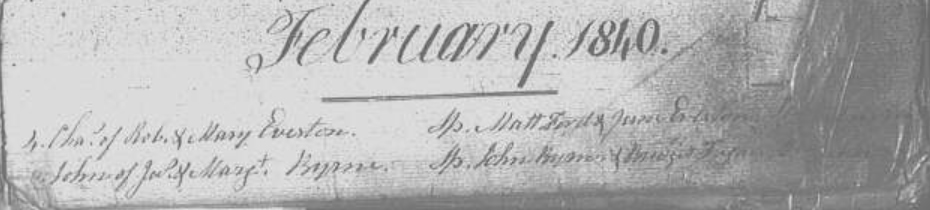 February. 1840.
4. Chaˢ. of Rob. & Mary Everton. Sp. Matt Ford & Jane
John of Jaˢ. & Margᵗ. Byrne. Sp. John Byrne &